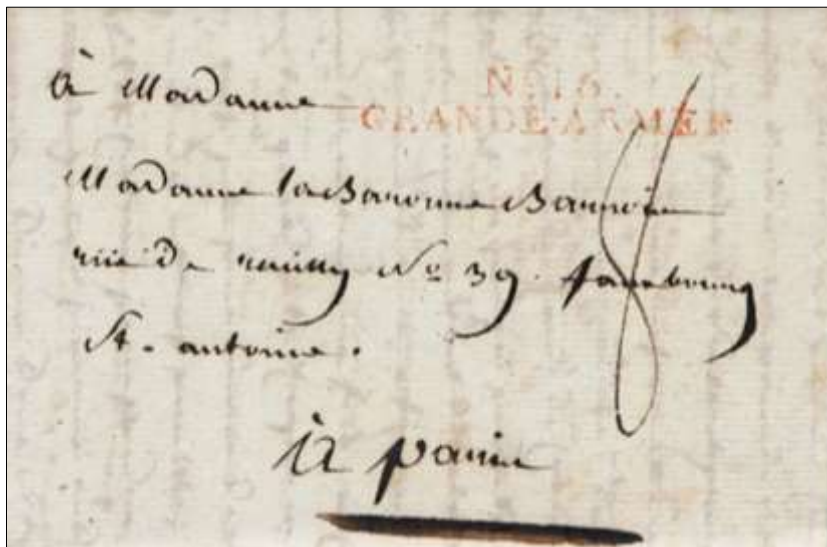 à Madame
N.° 18.
GRANDE-ARMÉE
8
Madame la Baronne
rue de reuilly N.° 39. faurbourg
St. antoine.
à paris